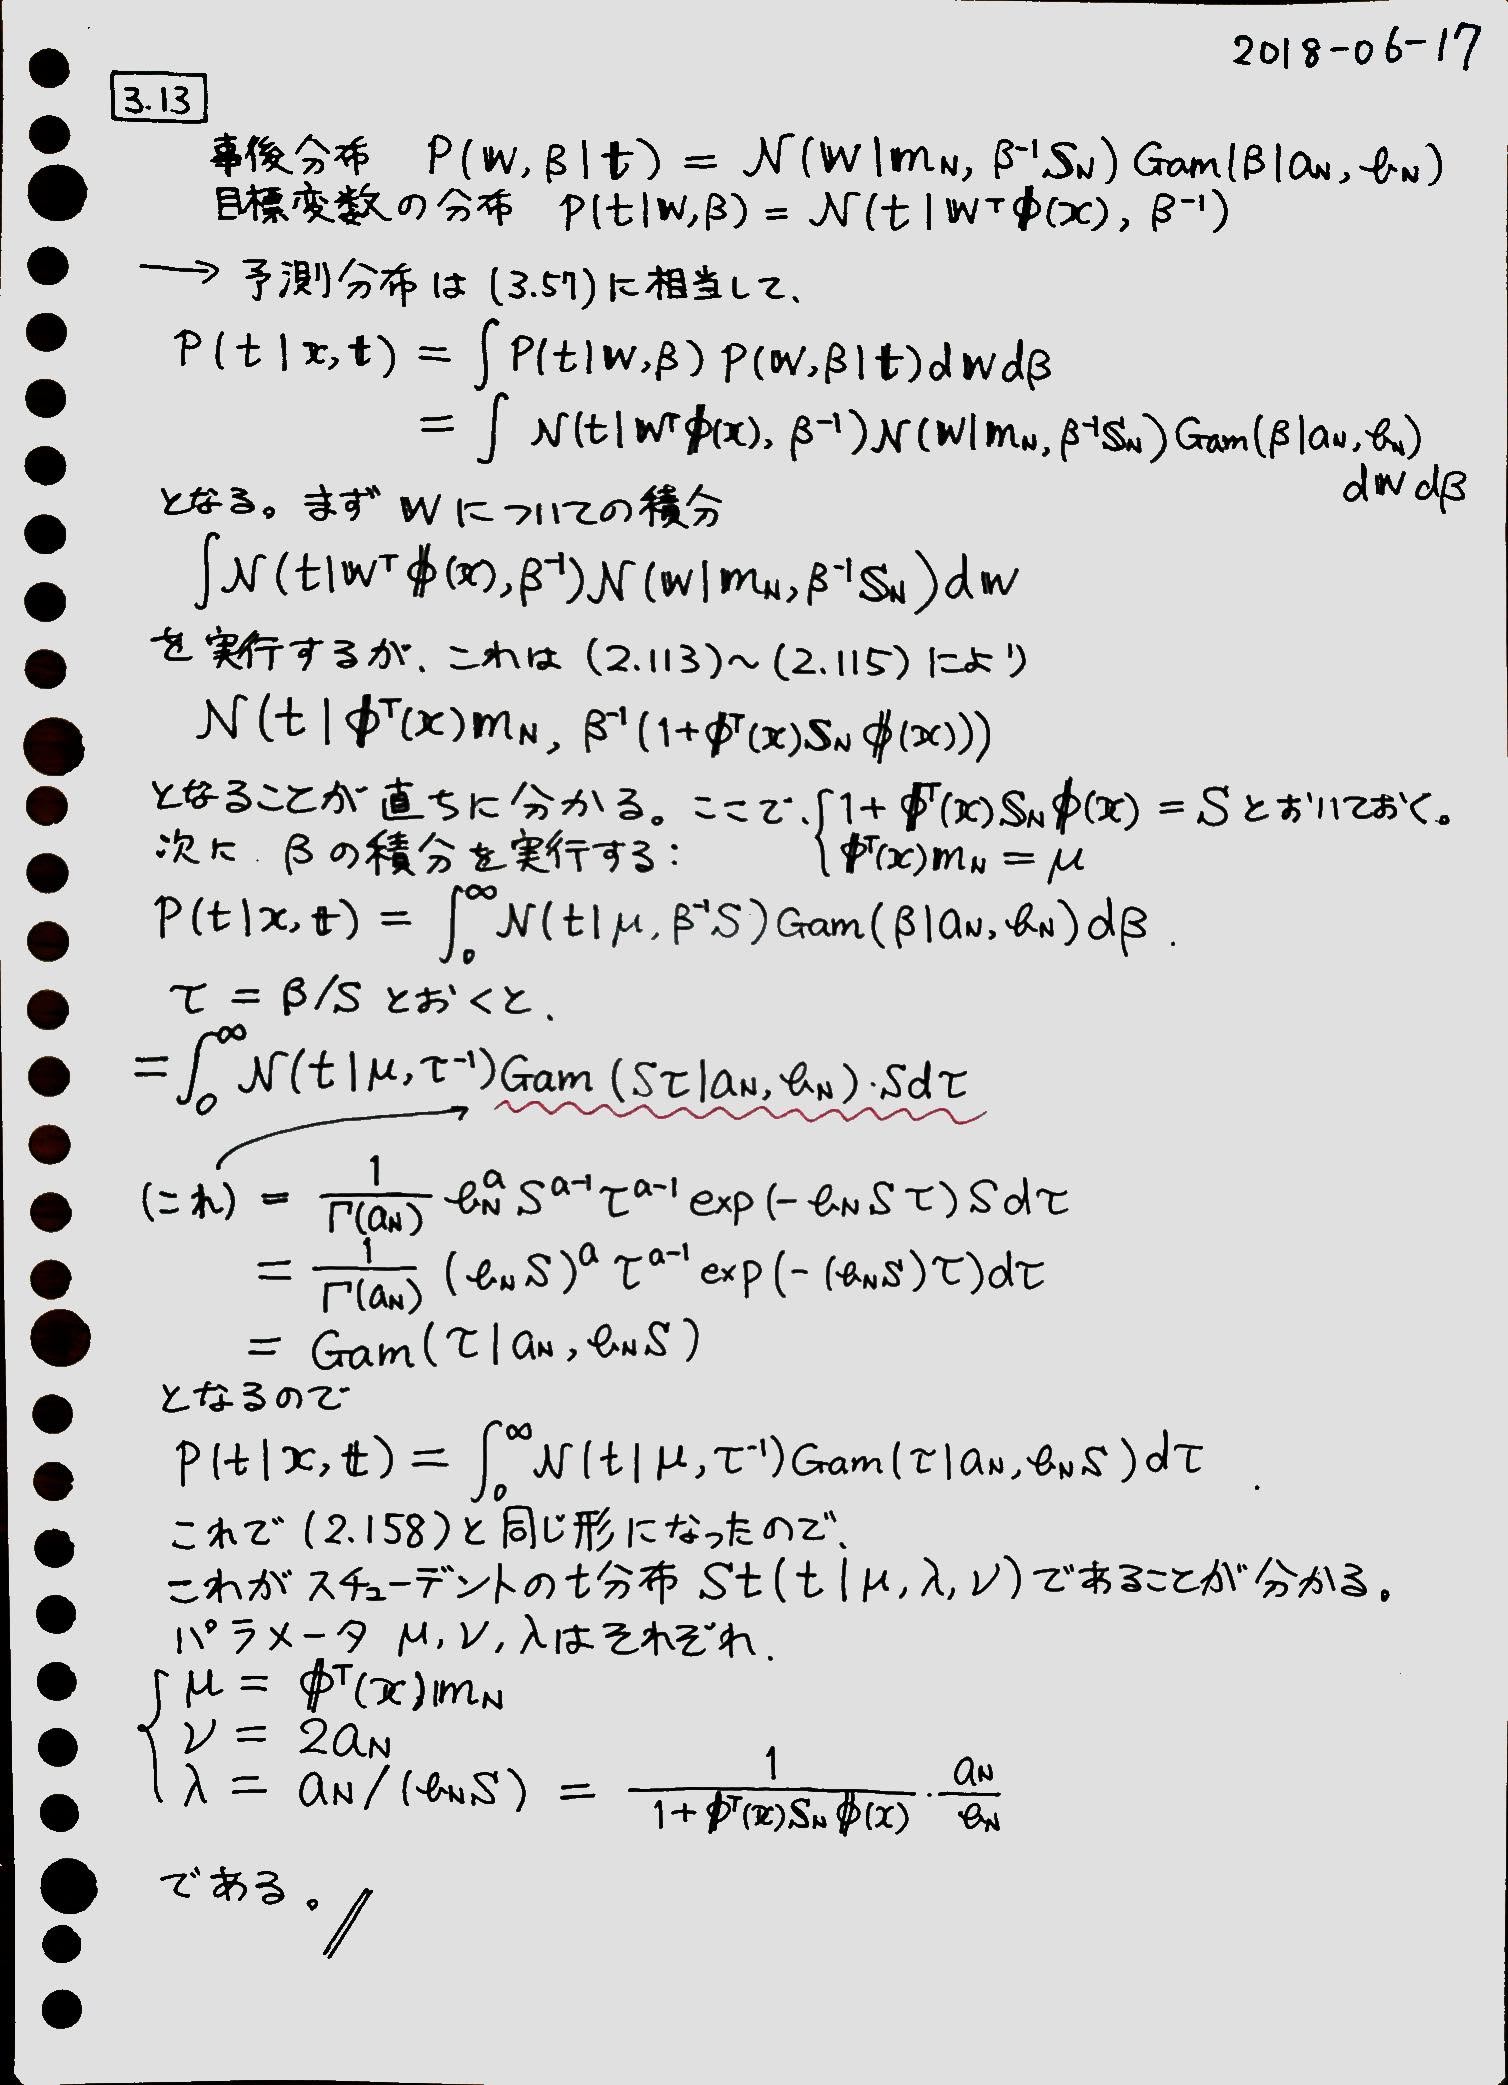 2018-06-17
3.13
事後分布 P(w, β|t) = N(w|m_N, β⁻¹S_N) Gam(β|a_N, b_N)
目標変数の分布 P(t|w,β) = N(t|wᵀφ(x), β⁻¹)
→ 予測分布は (3.57)に相当して、
P(t|x, t) = ∫ P(t|w,β) P(w,β|t)dwdβ
= ∫ N(t|wᵀφ(x), β⁻¹)N(w|m_N, β⁻¹S_N)Gam(β|a_N, b_N)
dwdβ
となる。まず w についての積分
∫N(t|wᵀφ(x), β⁻¹)N(w|m_N, β⁻¹S_N)dw
を実行するが、これは (2.113)~(2.115) により
N(t|φᵀ(x)m_N, β⁻¹(1+φᵀ(x)S_Nφ(x)))
となることが直ちに分かる。ここで、{1+φᵀ(x)S_Nφ(x) = S とおいておく。
次に、βの積分を実行する: φᵀ(x)m_N = μ
P(t|x, t) = ∫₀^∞ N(t|μ, β⁻¹S)Gam(β|a_N, b_N)dβ.
τ = β/S とおくと、
= ∫₀^∞ N(t|μ, τ⁻¹)Gam(Sτ|a_N, b_N)·Sdτ
(これ) = 1/Γ(a_N) b_N^a S^{a-1} τ^{a-1} exp(-b_N S τ) S dτ
= 1/Γ(a_N) (b_N S)^a τ^{a-1} exp(-(b_N S)τ)dτ
= Gam(τ|a_N, b_N S)
となるので
P(t|x, t) = ∫₀^∞ N(t|μ, τ⁻¹)Gam(τ|a_N, b_N S)dτ.
これで (2.158)と同じ形になったので、
これがスチューデントのt分布 St(t|μ, λ, ν)であることが分かる。
パラメータ μ, ν, λはそれぞれ、
{ μ = φᵀ(x)m_N
ν = 2a_N
λ = a_N/(b_N S) = 1/(1+φᵀ(x)S_Nφ(x)) · a_N/b_N
である。//